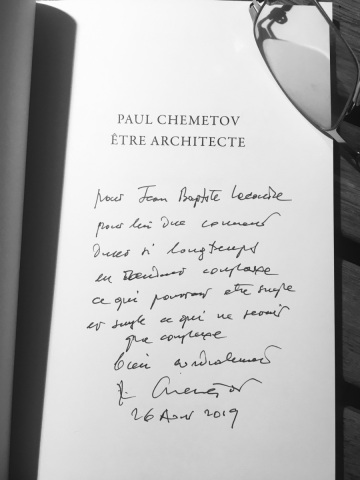 PAUL CHEMETOV
ÊTRE ARCHITECTE
pour Jean Baptiste
pour lui dire comment
durer si longtemps
en rendant complexe
ce qui pourrait etre simple
et simple ce qui ne serait
que complexe
bien cordialement
P. Chemetov
26 Aout 2019